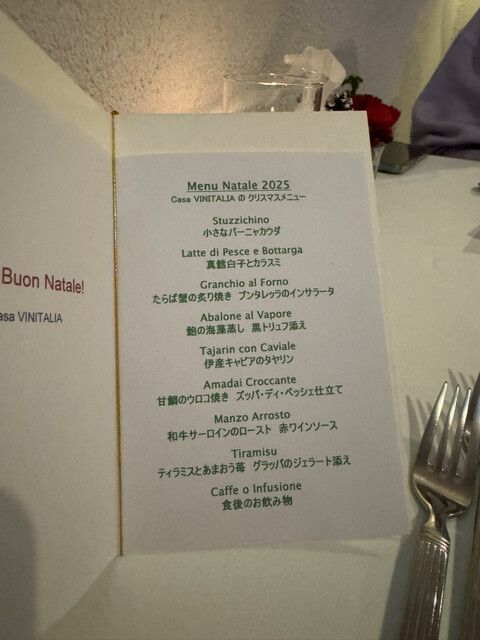 Buon Natale!
asa VINITALIA
Menu Natale 2025
Casa VINITALIA の クリスマスメニュー
Stuzzichino
小さなバーニャカウダ
Latte di Pesce e Bottarga
真鱈白子とカラスミ
Granchio al Forno
たらば蟹の炙り焼き プンタレッラのインサラータ
Abalone al Vapore
鮑の海藻蒸し 黒トリュフ添え
Tajarin con Caviale
伊産キャビアのタヤリン
Amadai Croccante
甘鯛のウロコ焼き ズッパ・ディ・ペッシェ仕立て
Manzo Arrosto
和牛サーロインのロースト 赤ワインソース
Tiramisu
ティラミスとあまおう苺 グラッパのジェラート添え
Caffe o Infusione
食後のお飲み物